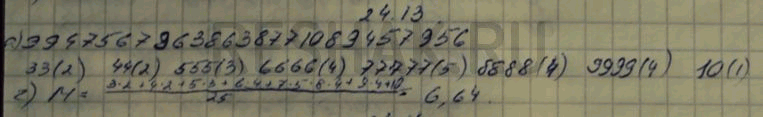 24.13
а) 9947567963863877108945 7956
33(2) 44(2) 555(3) 6666(4) 77777(5) 8888(4) 9999(4) 10(1)
г) М = (3·2+4·2+5·3+6·4+7·5·8·4+9·4+10)/25 = 6,64.